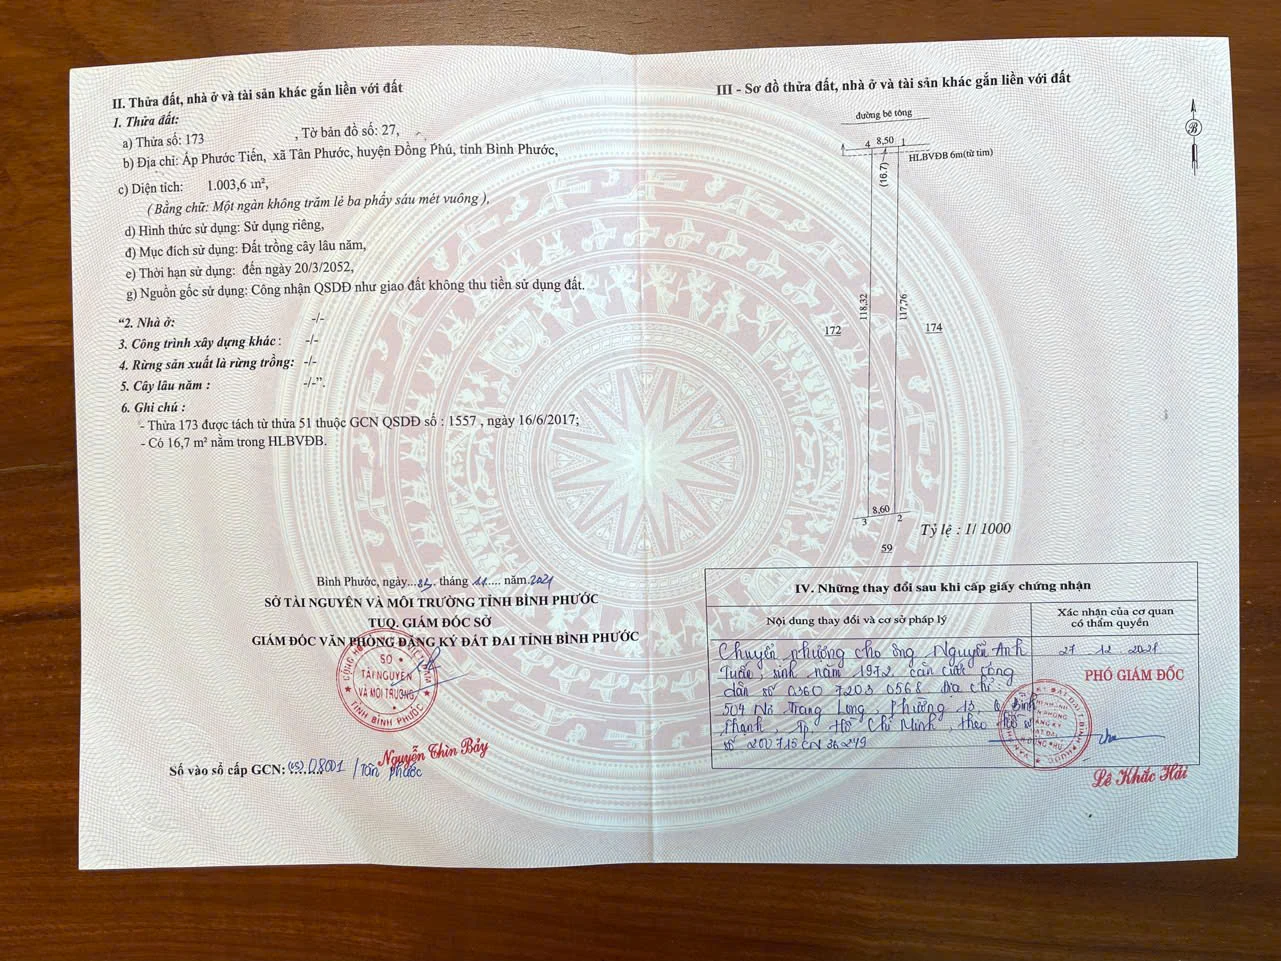 II. Thửa đất, nhà ở và tài sản khác gắn liền với đất
1. Thửa đất:
a) Thửa số: 173 , Tờ bản đồ số: 27,
b) Địa chỉ: Ấp Phước Tiến, xã Tân Phước, huyện Đồng Phú, tỉnh Bình Phước,
c) Diện tích: 1.003,6 m²,
( Bằng chữ: Một ngàn không trăm lẻ ba phẩy sáu mét vuông ),
d) Hình thức sử dụng: Sử dụng riêng,
đ) Mục đích sử dụng: Đất trồng cây lâu năm,
e) Thời hạn sử dụng: đến ngày 20/3/2052,
g) Nguồn gốc sử dụng: Công nhận QSDĐ như giao đất không thu tiền sử dụng đất.
“2. Nhà ở: -/-
3. Công trình xây dựng khác : -/-
4. Rừng sản xuất là rừng trồng: -/-
5. Cây lâu năm : -/-”.
6. Ghi chú :
- Thửa 173 được tách từ thửa 51 thuộc GCN QSDĐ số : 1557 , ngày 16/6/2017;
- Có 16,7 m² nằm trong HLBVĐB.
Bình Phước, ngày... tháng .11..... năm.2021
SỞ TÀI NGUYÊN VÀ MÔI TRƯỜNG TỈNH BÌNH PHƯỚC
TUQ. GIÁM ĐỐC SỞ
GIÁM ĐỐC VĂN PHÒNG ĐĂNG KÝ ĐẤT ĐAI TỈNH BÌNH PHƯỚC
SỞ
TÀI NGUYÊN
VÀ MÔI TRƯỜNG
TỈNH BÌNH PHƯỚC
Nguyễn Thìn Bảy
Số vào sổ cấp GCN: (CS) 08001 / Tân Phước
III - Sơ đồ thửa đất, nhà ở và tài sản khác gắn liền với đất
đường bê tông
4 8,50 1
HLBVĐB 6m(từ tim)
(16.7)
B
118,32
117,76
172
174
8,60
3 2
59
Tỷ lệ : 1/ 1000
IV. Những thay đổi sau khi cấp giấy chứng nhận
Nội dung thay đổi và cơ sở pháp lý
Xác nhận của cơ quan có thẩm quyền
Chuyển nhượng cho ông Nguyễn Anh
Tuấn, sinh năm 1972, căn cước công
dân số 0360 7203 0568 địa chỉ:
509 Nơ Trang Long, Phường 13, Q Bình
Thạnh, Tp. Hồ Chí Minh, theo hồ sơ
số 200715 CN
27 12 2021
PHÓ GIÁM ĐỐC
Lê Khắc Hải